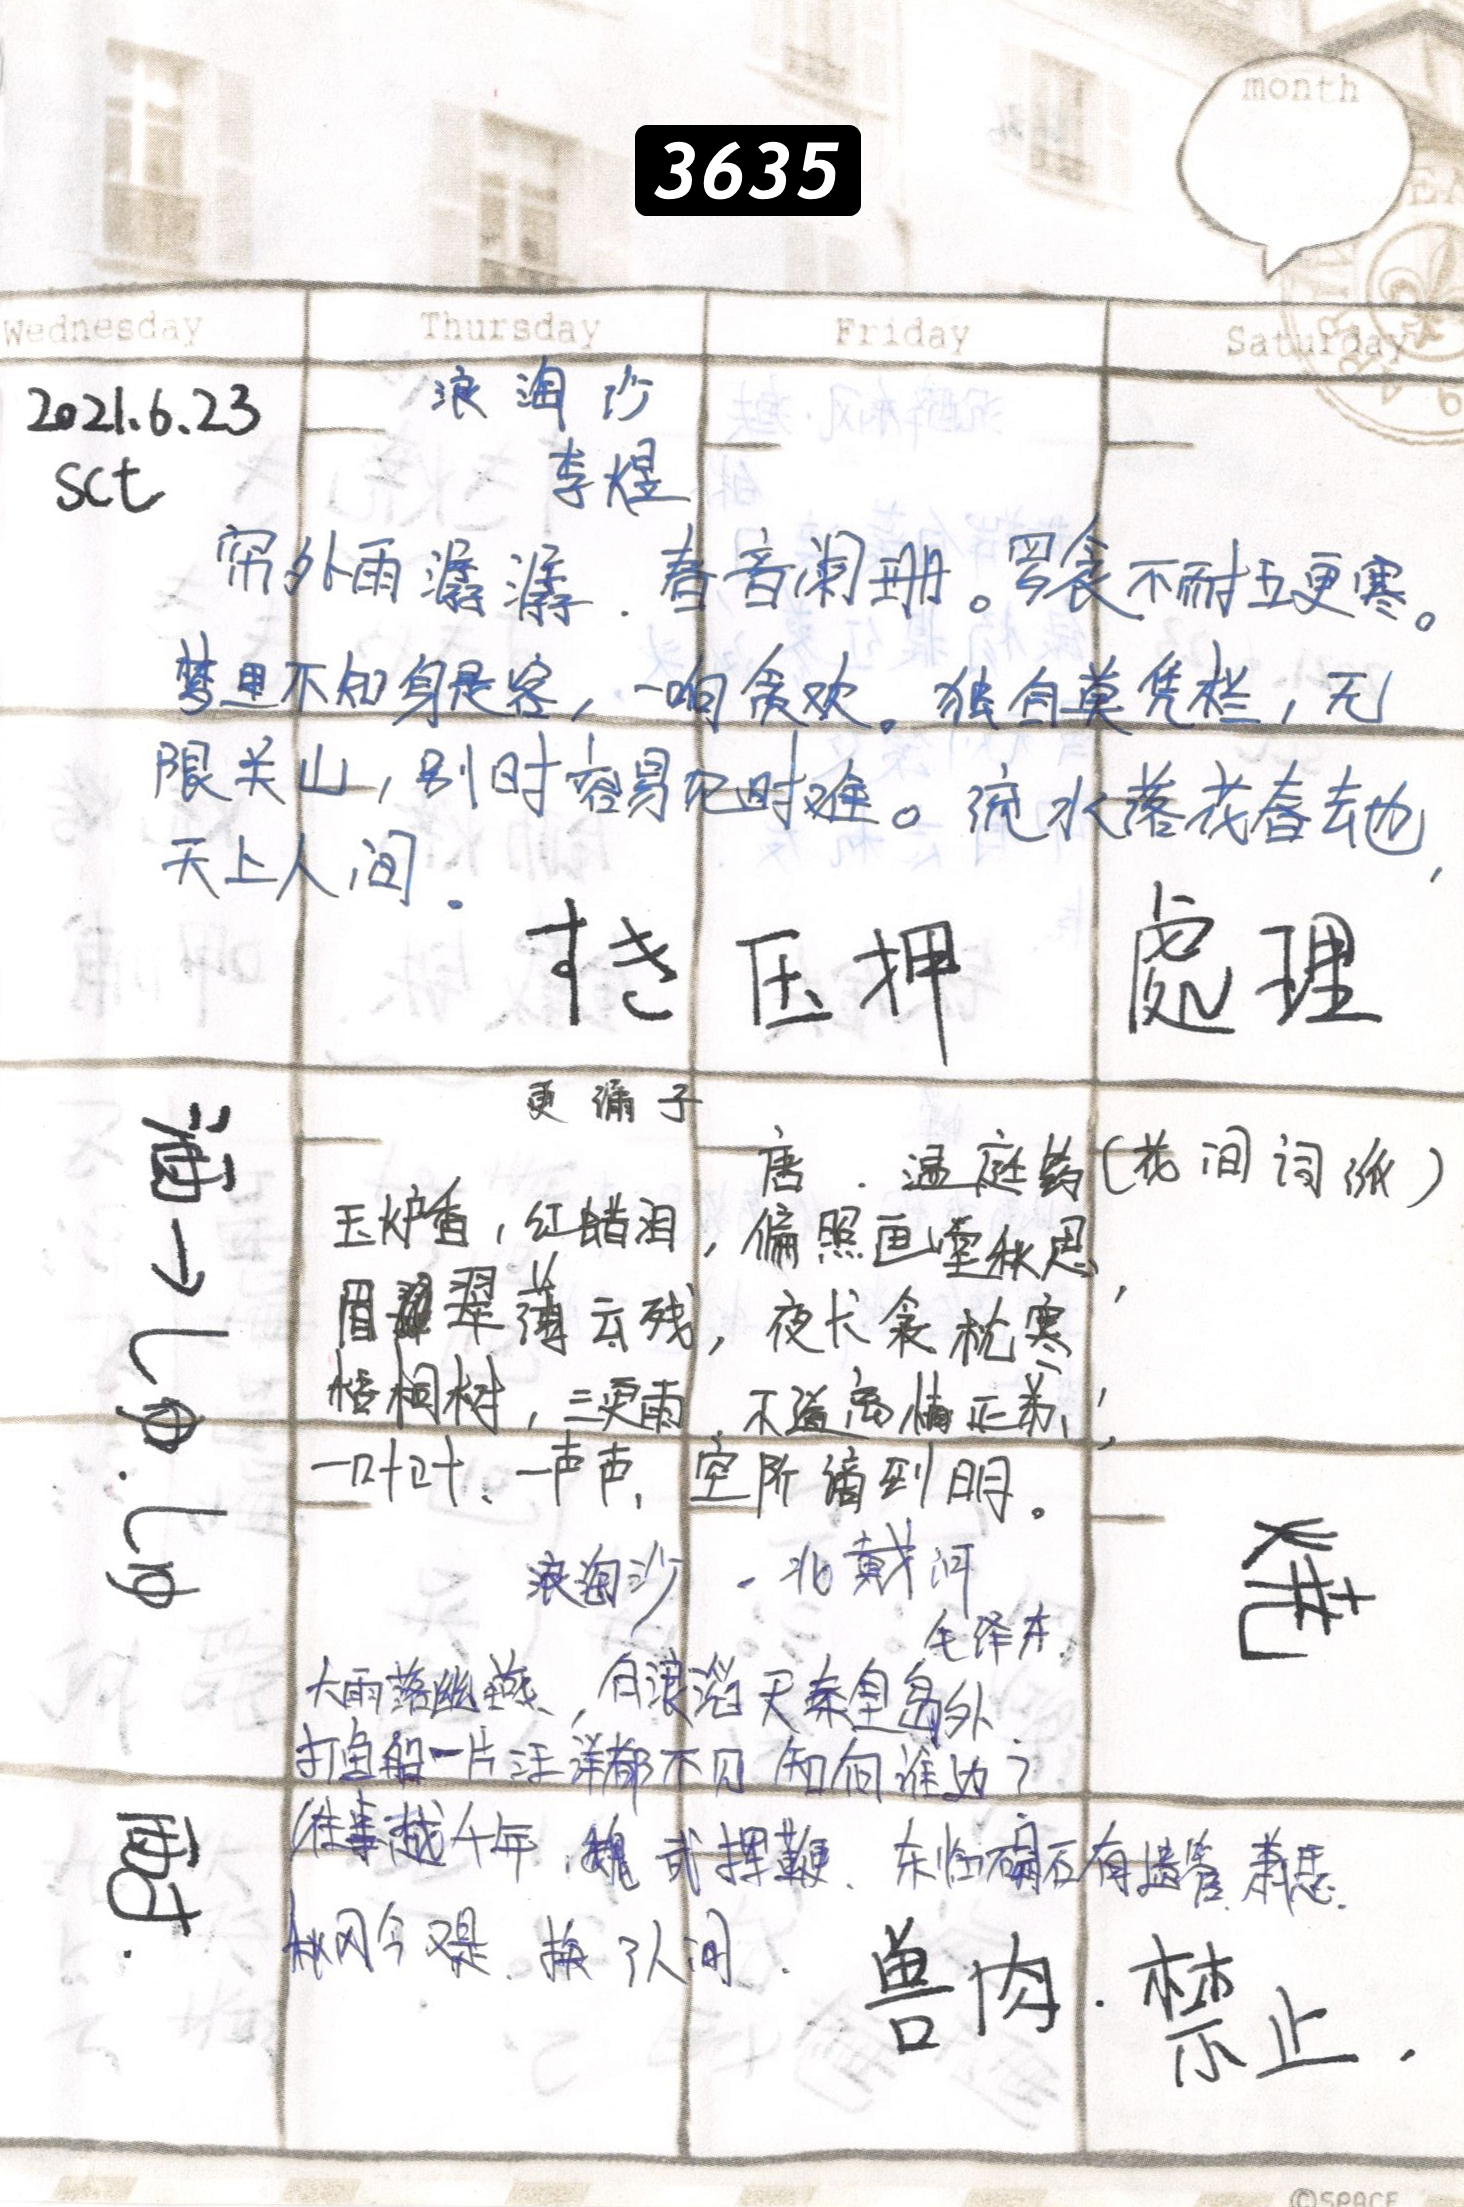 month
3635
Wednesday Thursday Friday Saturday
2021.6.23
sct
浪淘沙
李煜
帘外雨潺潺.春音阑珊。罗衾不耐五更寒。
梦里不知身是客,一晌贪欢。独自莫凭栏,无
限关山,别时容易见时难。流水落花春去也,
天上人间.
すき 压押 處理
酒→しゅ.しゅ
更漏子
唐.温庭筠(花间词派)
玉炉香,红蜡泪,偏照画堂秋思,
眉翠薄云残,夜长衾枕寒
梧桐树,三更雨,不道离情正苦,
一叶叶、一声声,空阶滴到明。
浪淘沙.北戴河
毛泽东.
大雨落幽燕,白浪滔天秦皇岛外
打鱼船一片汪洋都不见 知向谁边?
往事越千年.魏武挥鞭.东临碣石有遗篇.萧思.
秋风今又是.换了人间.
焼
酎.
兽肉.禁止.
©SPACE